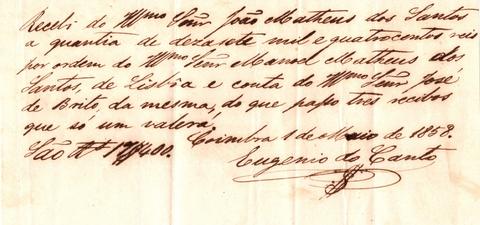 Recebi do Illmo Senr João Matheus dos Santos
a quantia de dezasete mil e quatrocentos reis
por ordem do Illmo Senr Manoel Matheus dos
Santos, de Lisboa e conta do Illmo Senr José
de Brito, da mesma, do que passo tres recibos
que só um valerá.
Coimbra 1 de Maio de 1858.
São Rs 17$400.
Eugenio do Canto